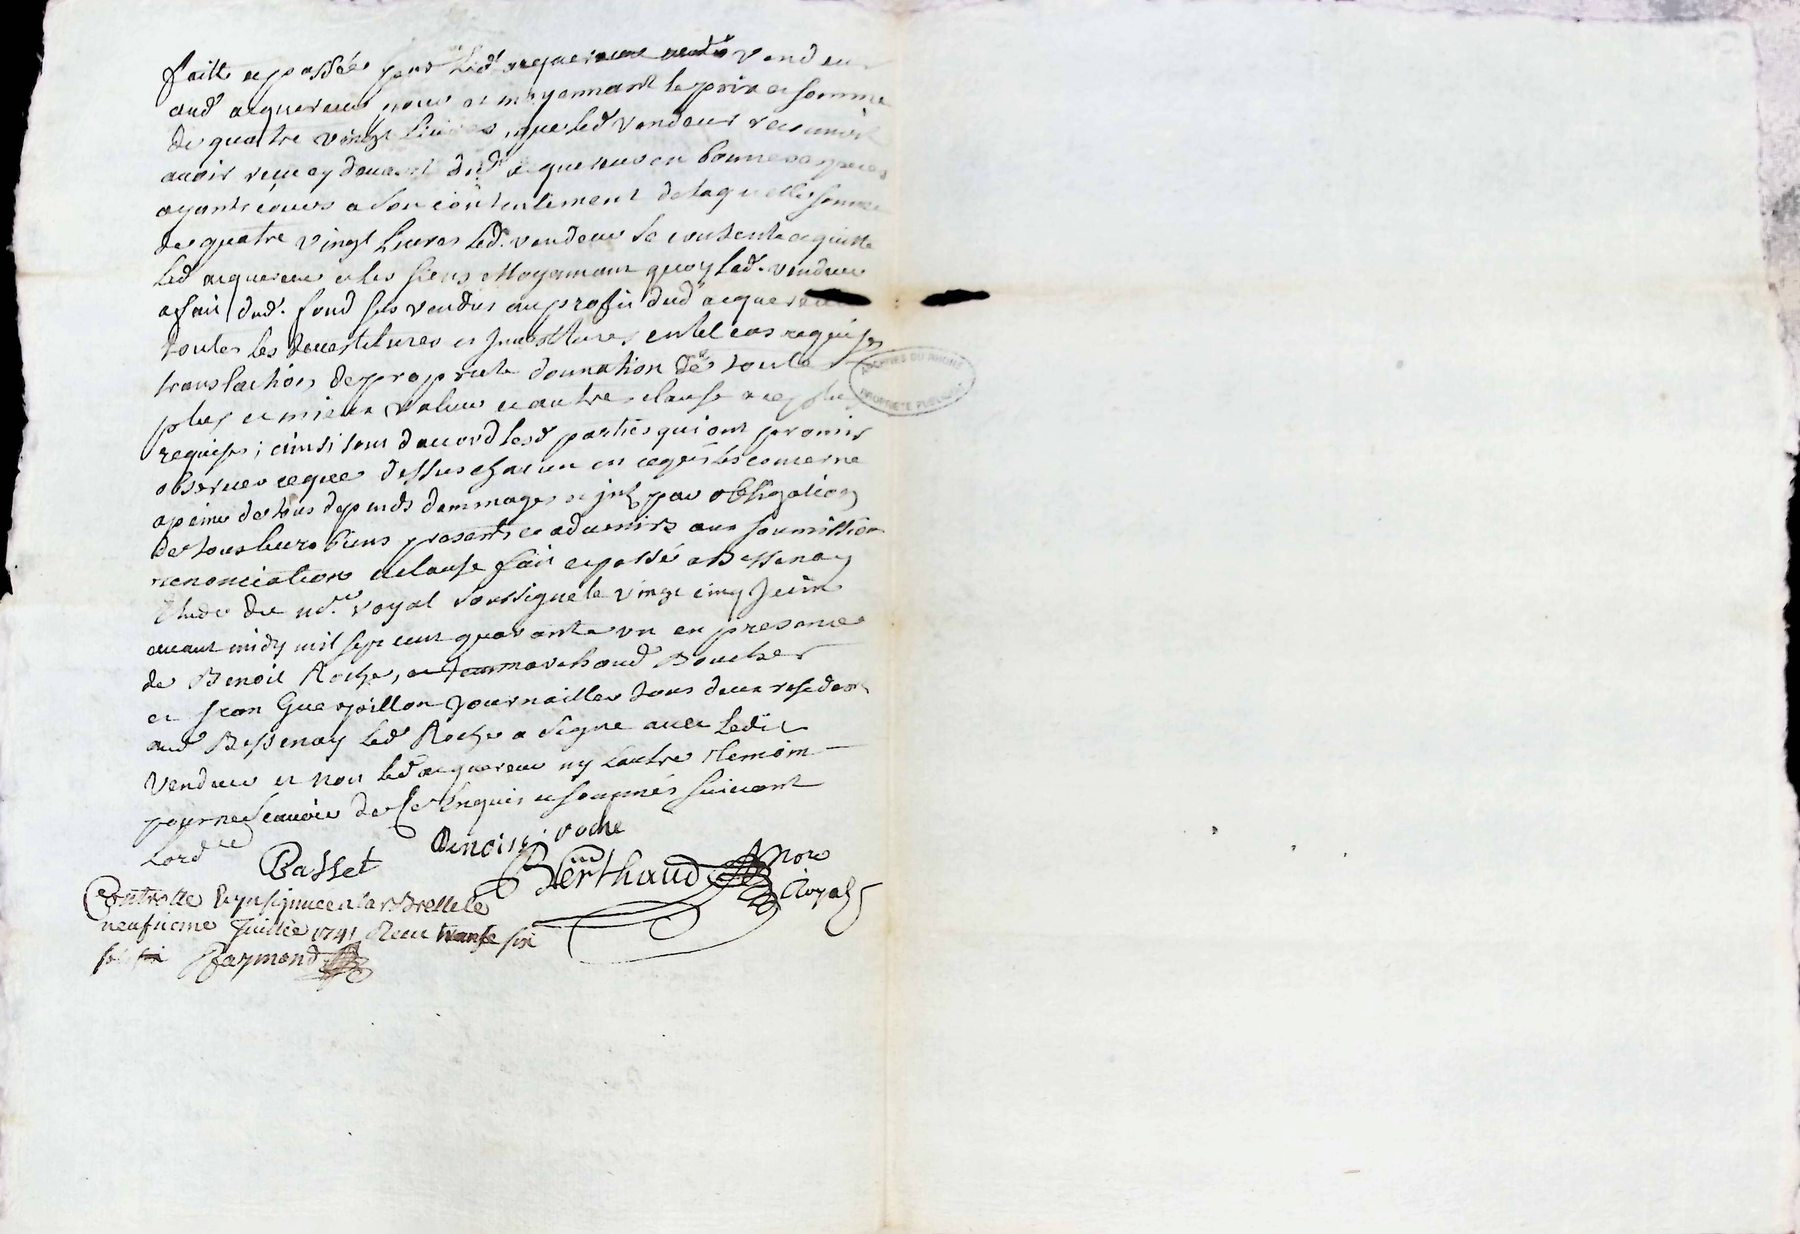 faitte et passée par led. vendeur
aud. acquereur pour et moyennant le prix et somme
de quatre vingt livres, que led. vendeur reconnoit
avoir receu cy devant dud. acquereur en bonnes especes
ayants cours a son contentement de laquelle somme
de quatre vingt livres led. vendeur se contente et quitte
led. acquereur et les siens Moyennant quoy led. vendeur
a fait dud. fond sus vendus au profit dud. acquereur
toutes les devestitures et Investitures en tel cas requises
translation de propriete donnation de toute
plus et mieux value et autres clauses a ce plus
requises; ainsi sont d'accord lesd. parties qui ont promis
observer ce que dessus chacun en ce qui les concerne
a peine de tous depends dommages et jnts. par obligation
de tous leurs biens presents et advenirs aux soumissions
renonciations et clauses fait et passé a Bessenay
Etude du nore. royal soussigné le vingt cinq Juin
avant midy mil sept cent quarante un en presence
de Benoit Roche, marchand Boucher
et Jean Guerpillon Journaillier tous deux residents
aud. Bessenay led. Roche a signé avec ledit
vendeur et non led. acquereur ny l'autre temoin
pour ne sçavoir de ce Enquis et sommés suivant
Lordce
Benoist roche
Basset
Berthaud Nore
Royal
Controllé et insinué a Larbrelle le
neufieme Juillet 1741 Receu six
sols
Raymond
ARCHIVES DU RHONE
PROPRIETE PUBLIQUE